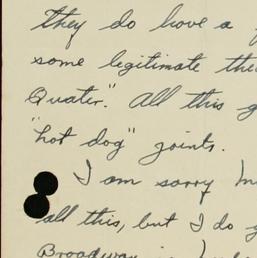 they do have a
some legitimate the
Quater." All this g
"hot dog" joints.
I am sorry
all this, but I do g
Broadway